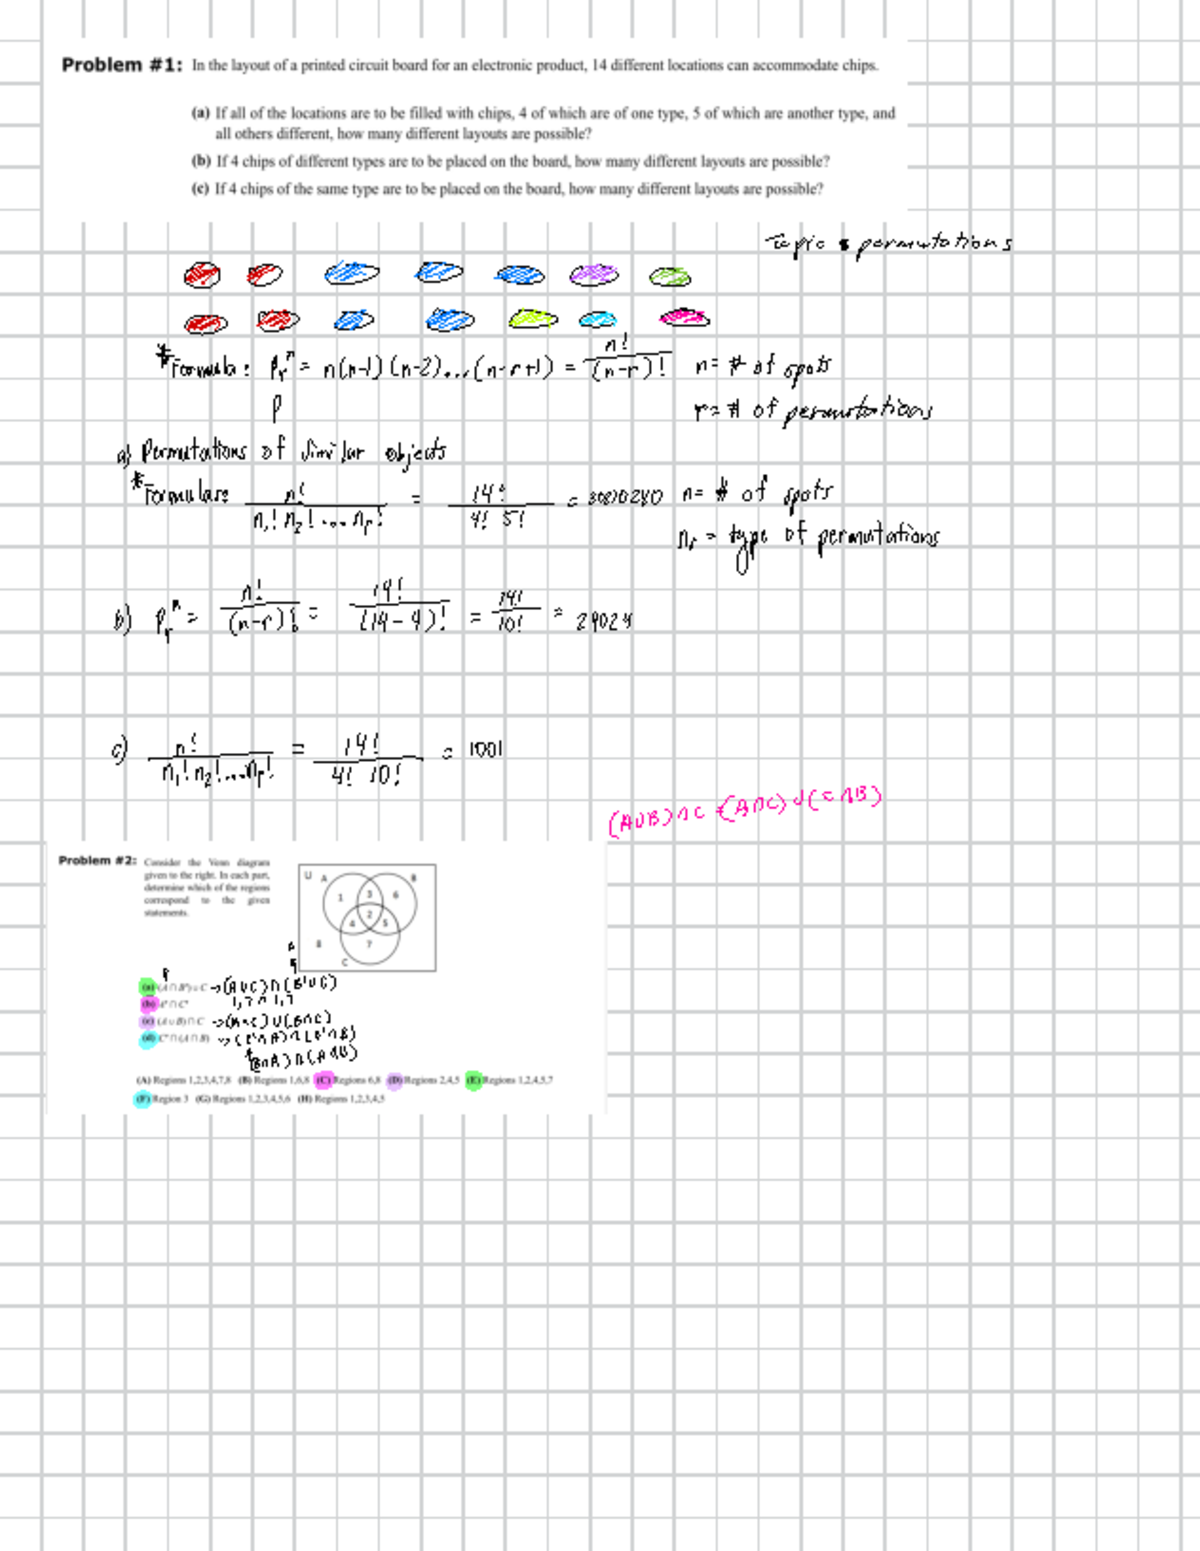 Problem #1: In the layout of a printed circuit board for an electronic product, 14 different locations can accommodate chips.
(a) If all of the locations are to be filled with chips, 4 of which are of one type, 5 of which are another type, and
all others different, how many different layouts are possible?
(b) If 4 chips of different types are to be placed on the board, how many different layouts are possible?
(c) If 4 chips of the same type are to be placed on the board, how many different layouts are possible?
Topic: permutations
*Formula: P_r^n = n(n-1)(n-2)...(n-r+1) = n!/(n-r)! n = # of spots
P r = # of permutations
a) Permutations of similar objects
*Formulas: n!/(n_1! n_2! ... n_r!) = 14!/(4! 5!) = 30270240 n = # of spots
n_r = type of permutations
b) P_r^n = n!/(n-r)! = 14!/(14-4)! = 14!/10! = 24024
c) n!/(n_1! n_2! ... n_r!) = 14!/(4! 10!) = 1001
(A∪B)∩C = (A∩C)∪(C∩B)
Problem #2: Consider the Venn diagram
given to the right. In each part,
determine which of the regions
correspond to the given
statements.
U A B
1 3 6
2
4 5
8 7
C
(a) (A∩B')∪C → (A∪C)∩(B'∪C)
(b) ∩C' 1,7 ∩ 1,7
(c) (A∪B)∩C → (A∩C)∪(B∩C)
(d) C'∩(A∩B) → (C'∩A)∩(C'∩B)
(A) Regions 1,2,3,4,7,8 (B) Regions 1,6,8 (C) Regions 6,8 (D) Regions 2,4,5 (E) Regions 1,2,4,5,7
(F) Region 3 (G) Regions 1,2,3,4,5,6 (H) Regions 1,2,3,4,5